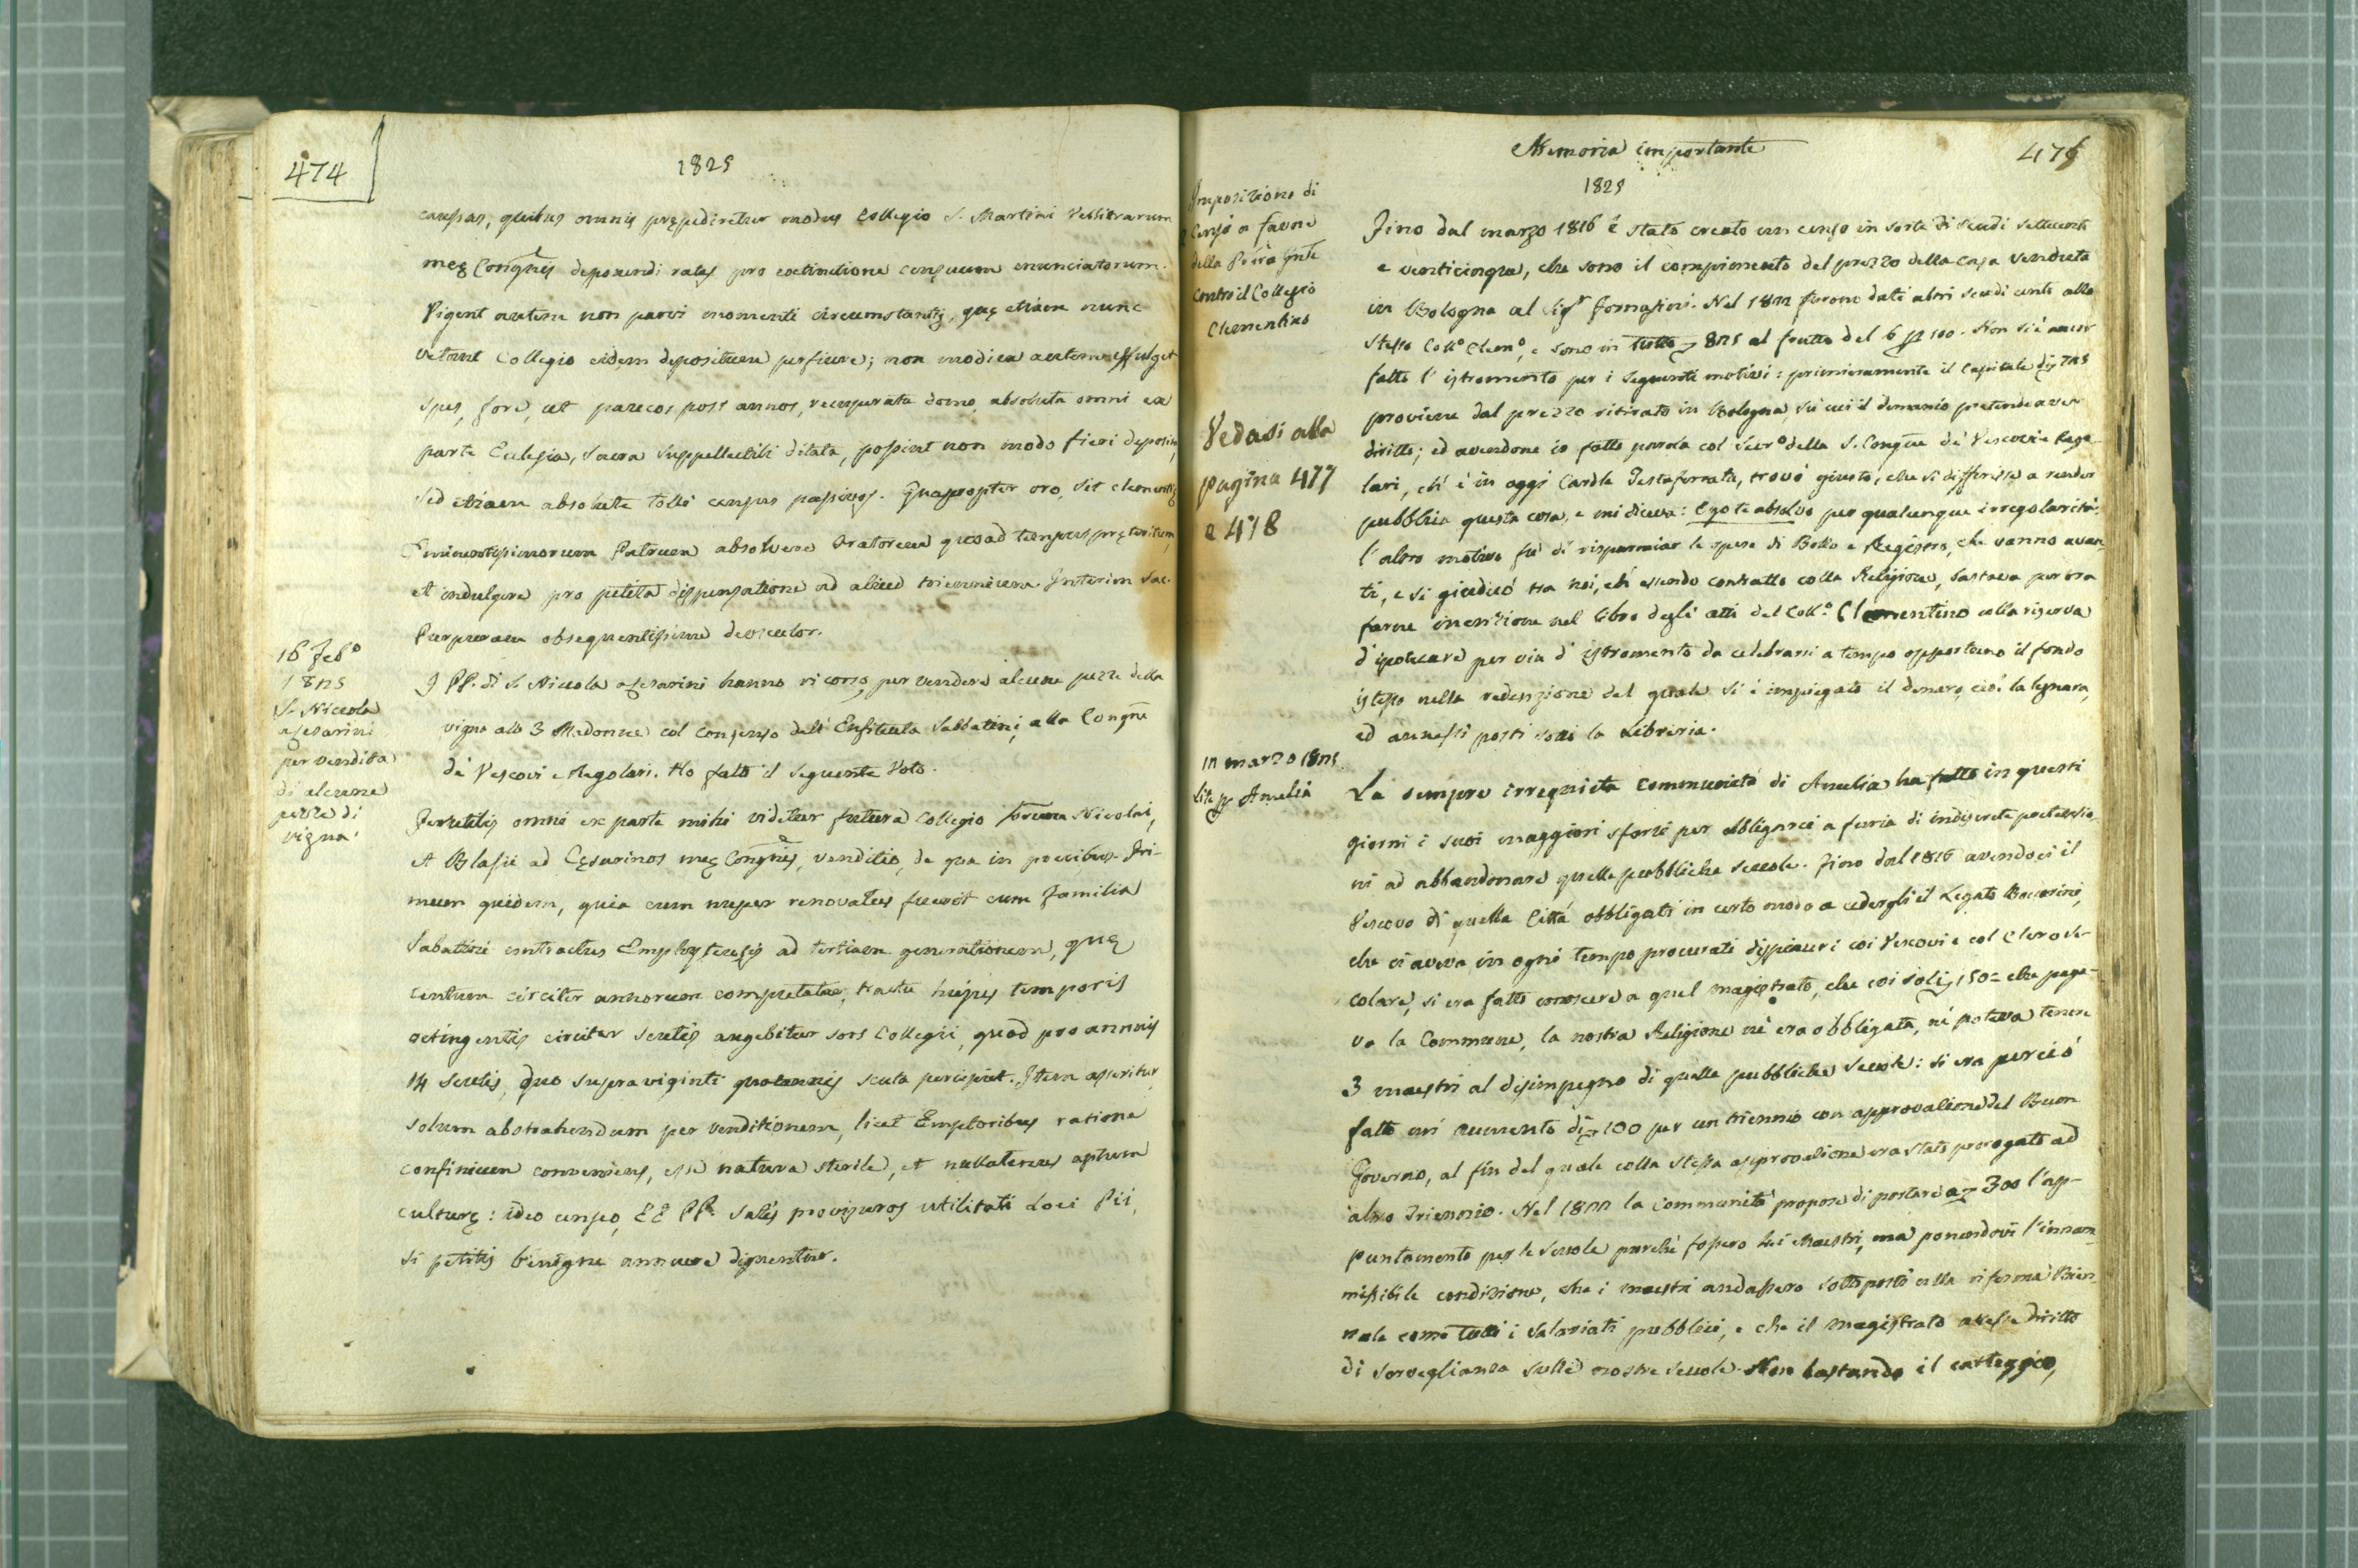 474
1825
causas, quibus omnis prępediretur modus Collegio S. Martini Vellitrarum
meę Congnis deponendi rates pro extinctione censuum enunciatorum.
Vigent autem non parvi momenti circumstantię, quę etiam nunc
vetant Collegio eidem depositum perficere; non modica autem effulget
spes, fore, ut paucos post annos, recuperata domo, absoluta omni ex
parte Ecclesia, sacra suppellectili ditata, possint non modo fieri deposita,
sed etiam absolute tolli census passivos. Quapropter oro, sit clementię
Eminentissimorum Patrum absolvere Oratorem quoad tempus pręteritum,
et indulgere pro petita dispensatione ad aliud triennium. Interim Sac.
Purpuram obsequentissime deosculor.
16 Feb.o
1825
S. Niccola
a Cesarini
per vendita
di alcune
pezze di
vigna.
I PP. di S. Niccola a Cesarini hanno ricorso per vendere alcune pezze della
vigna alle 3 Madonne col consenso dell' Enfiteuta Sabbatini, alla Congne
de' Vescovi e Regolari. Ho fatto il seguente Voto.
Perutilis omni ex parte mihi videtur futura Collegio Nicolai,
et Blasii ad Cęsarinos meę Congnis, venditio, de qua in precibus. Pri-
mum quidem, quia cum nuper renovatus fuerit cum Familia
Sabattini contractus Emphyteusis ad tertiam generationem, quę
centum circiter annorum computatur, tractu hujus temporis
octingentis circiter scutis augebitur sors Collegii, quod pro annuis
14 scutis, duo supra viginti quotannis scuta percipiet. Item asseritur
solum abstrahendum per venditionem, licet Emptoribus ratione
confinium conveniens, esse natura sterile, et nullatenus aptum
culturę: ideo censeo, EE PP. satis provisuros utilitati Loci Pii,
si petitis benigne annuere dignentur.
Memoria importante
475
1825
Imposizione di
Censo a favore
della
contro il Collegio
Clementino
Fino dal marzo 1816 è stato creato un censo in sorte di scudi settecento
e venticinque, che sono il compimento del prezzo della casa venduta
in Bologna al Sigr Fornasini. Nel 1822 furono dati altri scudi cento allo
stesso Coll.o Clem.o, e sono in tutto 825 al frutto del 6 p 100. Non si è ancor
fatto l' istromento per i seguenti motivi: primieramente il capitale di 725
proviene dal prezzo ritirato in Bologna, su cui il demanio pretende aver
diritto; ed avendone io fatto parola col Secr.o della S. Congne de' Vescovi e Rego-
lari, ch' è in oggi Cardle Testaferrata, trovò giusto, che si differisse a render
pubblica questa cosa, e mi diceva: Ego te absolvo per qualunque irregolarità:
l' altro motivo fu di risparmiar le spese di Bollo e Registro, che vanno avan-
ti, e si giudicò tra noi, ch' essendo contratto colla Religione, bastava per ora
farne inserzione nel libro degli atti del Coll.o Clementino colla riserva
d' ipotecare per via d' istromento da celebrarsi a tempo opportuno il fondo
istesso nella redenzione del quale si è impiegato il denaro, cioè la legnara,
ed annessi posti sotto la Libreria.
Vedasi alla
pagina 477
e 478
12 marzo 1825
lite p Amelia
La sempre irrequieta Communità di Amelia ha fatto in questi
giorni i suoi maggiori sforzi per obbligarci a furia di indiscrete pretensio-
ni ad abbandonare quelle pubbliche scuole. Fino dal 1816 avendoci il
Vescovo di quella Città obbligati in certo modo a cedergli il Legato Bocarini,
che ci aveva in ogni tempo procurati dispiaceri coi Vescovi e col Clero se-
colare, si era fatto conoscere a quel magistrato, che coi soli 150 che paga-
va la Commune, la nostra Religione nè era obbligata, nè poteva tenere
3 maestri al disimpegno di quelle pubbliche scuole: si era perciò
fatto un' aumento di 100 per un triennio con approvazione del Buon
Governo, al fin del quale colla stessa approvazione era stato prorogato ad
altro Triennio. Nel 1822 la Communità propose di portare a 300 l' ap-
puntamento per le scuole purchè fossero maestri, ma ponendovi l' inam-
missibile condizione, che i maestri andassero sottoposti alla riforma Bien-
nale come tutti i salariati pubblici, e che il magistrato avesse diritto
di sorveglianza sulle nostre scuole. Non bastando il carteggio,